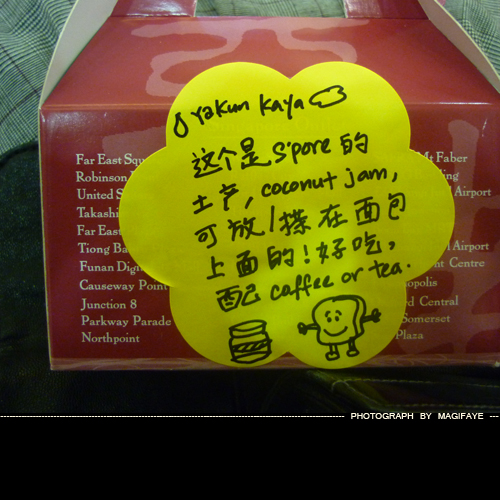 yakun kaya
这个是 S'pore 的
土产, coconut jam,
可放/搽在面包
上面的!好吃,
配 caffee or tea.
Far East Squ
Robinson
United S
Takashi
Far East
Tiong Ba
Funan Dig
Causeway Point
Junction 8
Parkway Parade
Northpoint
Mt Faber
Airport
Airport
Centre
opolis
rd Central
Somerset
Plaza
PHOTOGRAPH BY MAGIFAYE